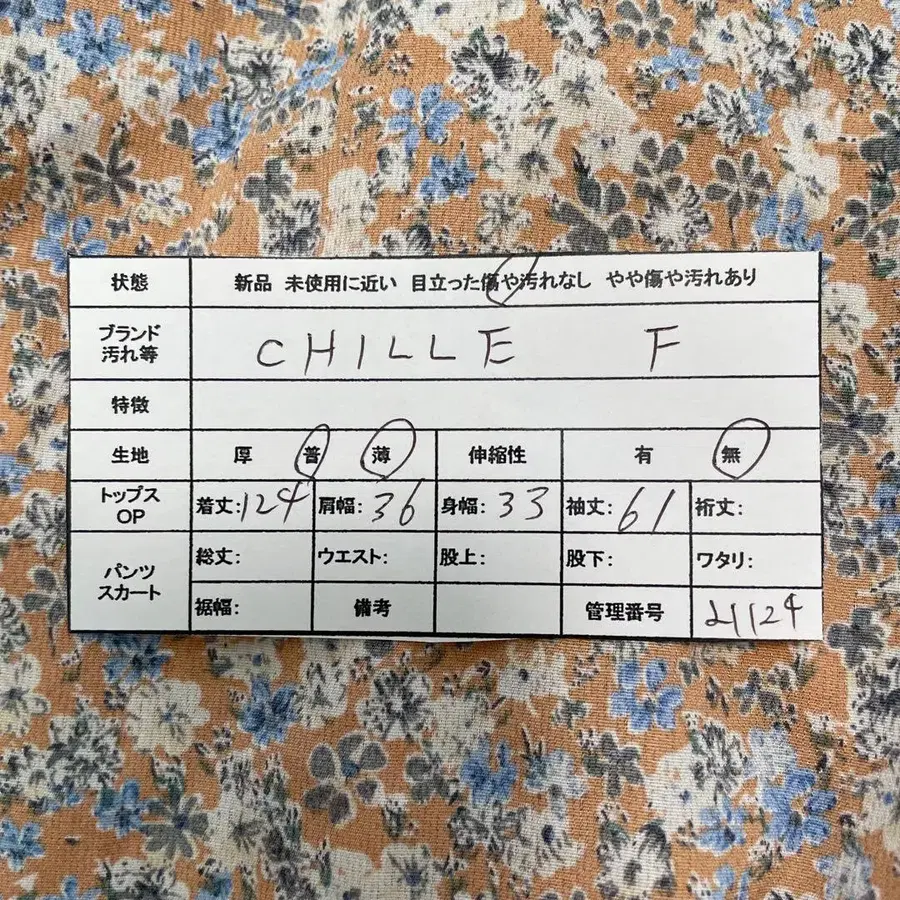 状態 新品 未使用に近い 目立った傷や汚れなし やや傷や汚れあり
ブランド
汚れ等 CHILLE F
特徴
生地 厚 普 薄 伸縮性 有 無
トップス
OP 着丈:124 肩幅:36 身幅:33 袖丈:61 裄丈:
パンツ
スカート 総丈: ウエスト: 股上: 股下: ワタリ:
裾幅: 備考 管理番号 21124